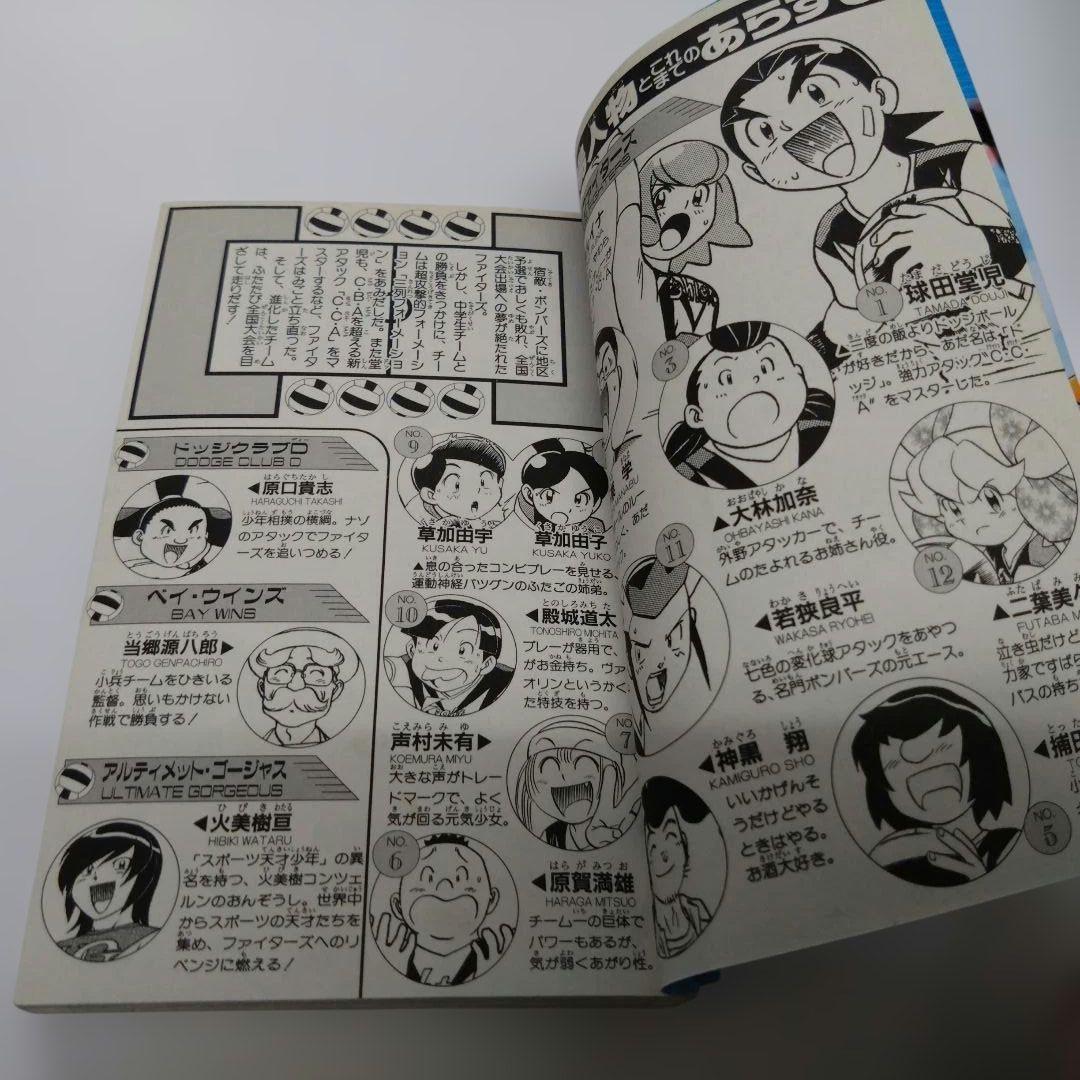 人物とこれまでのあらす
球田堂児
TAMADA DOUJI
NO. 1
▲三度の飯よりドッジボール
が好きだから、あだ名は「ド
ッジ」。強力アタック"C・C・
A"をマスターした。
NO. 3
▲大林加奈
OHBAYASHI KANA
外野アタッカーで、チー
ムのたよれるお姉さん役。
NO. 12
▲二葉美
FUTABA M
泣き虫だけど
力家ですばら
パスの持ち
NO. 11
◀若狭良平
WAKASA RYOHEI
七色の変化球アタックをあやつ
る、名門ボンバーズの元エース。
◀神黒翔
KAMIGURO SHO
いいかげんそ
うだけどやる
ときはやる。
お酒大好き。
NO. 5
宿敵・ボンバーズに地区
予選でおしくも敗れ、全国
大会出場への夢が絶たれた
ファイターズ。
しかし、中学生チームと
の勝負をきっかけに、チー
ムは超攻撃的フォーメーシ
ョン「三列フォーメーショ
ン」をあみだした。また堂
児も、C・B・Aを超える新
アタック「C・C・A」をマ
スターするなど、ファイタ
ーズはみごと立ち直った。
そして、進化したチーム
は、ふたたび全国大会を目
ざして走りだす!
ドッジクラブD
DODGE CLUB D
◀原口貴志
HARAGUCHI TAKASHI
少年相撲の横綱。ナゾ
のアタックでファイタ
ーズを追いつめる!
ベイ・ウインズ
BAY WINS
当郷源八郎▶
TOGO GENPACHIRO
小兵チームをひきいる
監督。思いもかけない
作戦で勝負する!
アルティメット・ゴージャス
ULTIMATE GORGEOUS
◀火美樹亘
HIBIKI WATARU
「スポーツ天才少年」の異
名を持つ、火美樹コンツェ
ルンのおんぞうし。世界中
からスポーツの天才たちを
集め、ファイターズへのリ
ベンジに燃える!
NO. 9
草加由宇
KUSAKA YU
草加由子
KUSAKA YUKO
▲息の合ったコンビプレーを見せる、
運動神経バツグンのふたごの姉弟。
NO. 10
◀殿城道太
TONOSHIRO MICHITA
プレーが器用で、
がお金持ち。ヴァ
オリンというかく
た特技を持つ。
声村未有▶
KOEMURA MIYU
大きな声がトレー
ドマークで、よく
気が回る元気少女。
NO. 7
NO. 6
◀原賀満雄
HARAGA MITSUO
チーム一の巨体で
パワーもあるが、
気が弱くあがり性。